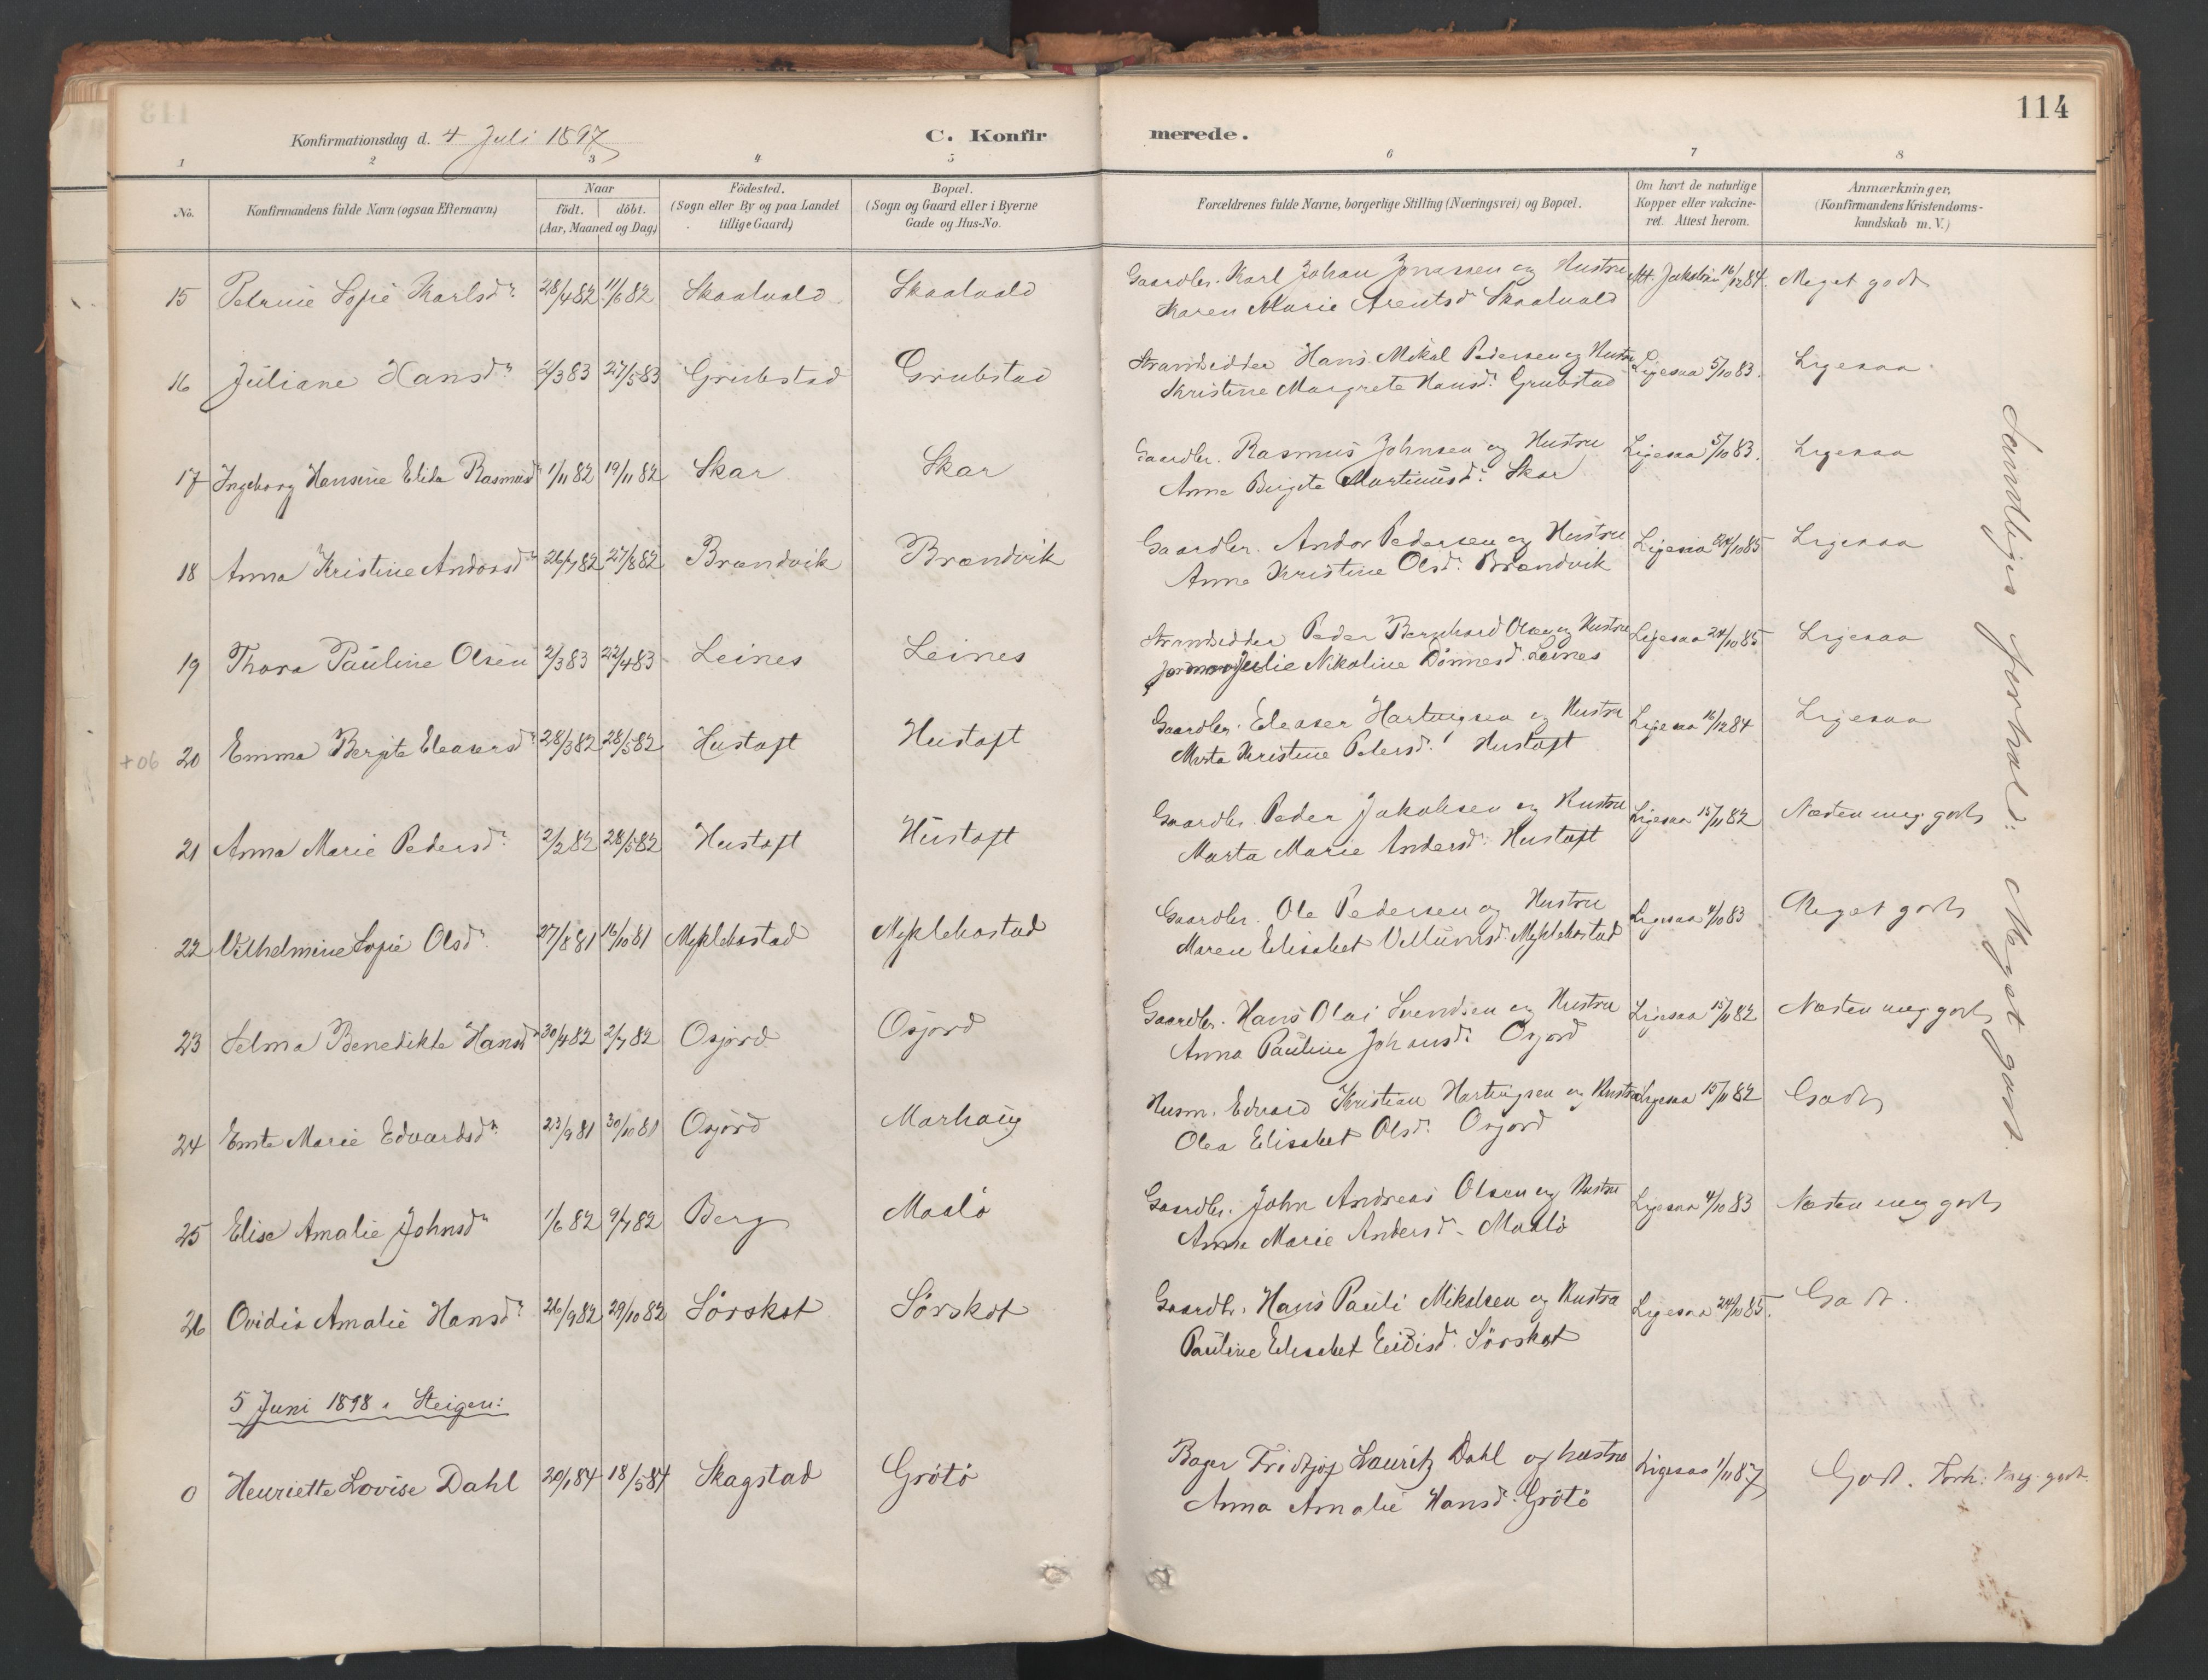 114
Konfirmationsdag d. 4 Juli 1897
C. Konfirmerede.
1 2 3 4 5 6 7 8
No. Konfirmandens fulde Navn (ogsaa Efternavn) Naar födt. döbt. (Aar, Maaned og Dag) Födested. (Sogn eller By og paa Landet tillige Gaard) Bopæl. (Sogn og Gaard eller i Byerne Gade og Hus-No. Forældrenes fulde Navne, borgerlige Stilling (Næringsvei) og Bopæl. Om havt de naturlige Kopper eller vakcineret. Attest herom. Anmærkninger, (Konfirmandens Kristendomskundskab m. V.)
15 Petrine Sofie Karlsd. 28/4 82 11/6 82 Skaalvald Skaalvald Gaardbr. Karl Johan Jonassen og Hustru Att. Jakobsen 16/12 84. Meget godt
Karen Marie Arentsd. Skaalvald
16 Juliane Hansd. 2/3 83 27/5 83 Grubstad Grubstad Strandsidder Hans Mikal Pedersen og Hustru Ligesaa 5/10 83. Ligesaa
Kristine Margrete Hansd. Grubstad
17 Ingeborg Hansine Elida Rasmusd. 1/11 82 19/11 82 Skar Skar Gaardbr. Rasmus Johnsen og Hustru Ligesaa 5/10 83. Ligesaa
Anne Birgite Martinusd. Skar
18 Anna Kristine Andorsd. 26/7 82 27/8 82 Brandvik Brandvik Gaardbr. Andor Pedersen og Hustru Ligesaa 24/10 85 Ligesaa
Anne Kristine Olsd. Brandvik
19 Thora Pauline Olsen 2/3 83 22/4 83 Leines Leines Strandsidder Peder Bernhard Olsen og Hustru Ligesaa 24/10 85 Ligesaa
Julie Nikoline Dönnesd. Leines
+06 20 Emma Bergite Eleasersd. 28/3 82 28/5 82 Hustoft Hustoft Gaardbr. Eleaser Hartvigsen og Hustru Ligesaa 16/12 84 Ligesaa
Marta Kristine Petersd. Hustoft
21 Anna Marie Pedersd. 2/2 82 28/5 82 Hustoft Hustoft Gaardbr. Peder Jakobsen og Hustru Ligesaa 15/11 82 Næsten meg. godt
Marta Marie Andersd. Hustoft
22 Vilhelmine Sofie Olsd. 27/8 81 16/10 81 Myklebostad Myklebostad Gaardbr. Ole Pedersen og Hustru Ligesaa 4/10 83 Meget godt
Maren Elisabet Villumsd. Myklebostad
23 Selma Benedikte Hansd. 30/4 82 2/7 82 Osjord Osjord Gaardbr. Hans Olai Svendsen og Hustru Ligesaa 15/11 82 Næsten meg godt
Anna Pauline Johansd. Osjord
24 Emte Marie Edvardsd. 23/9 81 30/10 81 Osjord Marhaug Husm. Edvard Kristian Hartvigsen og Hustru Ligesaa 15/11 82 Godt
Olea Elisabet Olsd. Osjord
25 Elise Amalie Johnsd. 1/6 82 9/7 82 Berg Maalö Gaardbr. John Andreas Olsen og Hustru Ligesaa 4/10 83 Næsten meg godt
Anna Marie Andersd. Maalö
26 Ovidia Amalie Hansd. 26/9 82 29/10 82 Sörskot Sörskot Gaardbr. Hans Pauli Mikalsen og Hustru Ligesaa 24/10 85. Godt.
Pauline Elisabet Sörskot
5 Juni 1898 i Steigen:
0 Henriette Lovise Dahl 20/1 84 18/5 84 Skagstad Grötö Bager Fridtjof Lauritz Dahl og hustru Ligesaa 1/11 87 Godt. Forh: Meg. godt.
Anna Amalie Hansd. Grötö
Samtliges forhold: Meget godt.